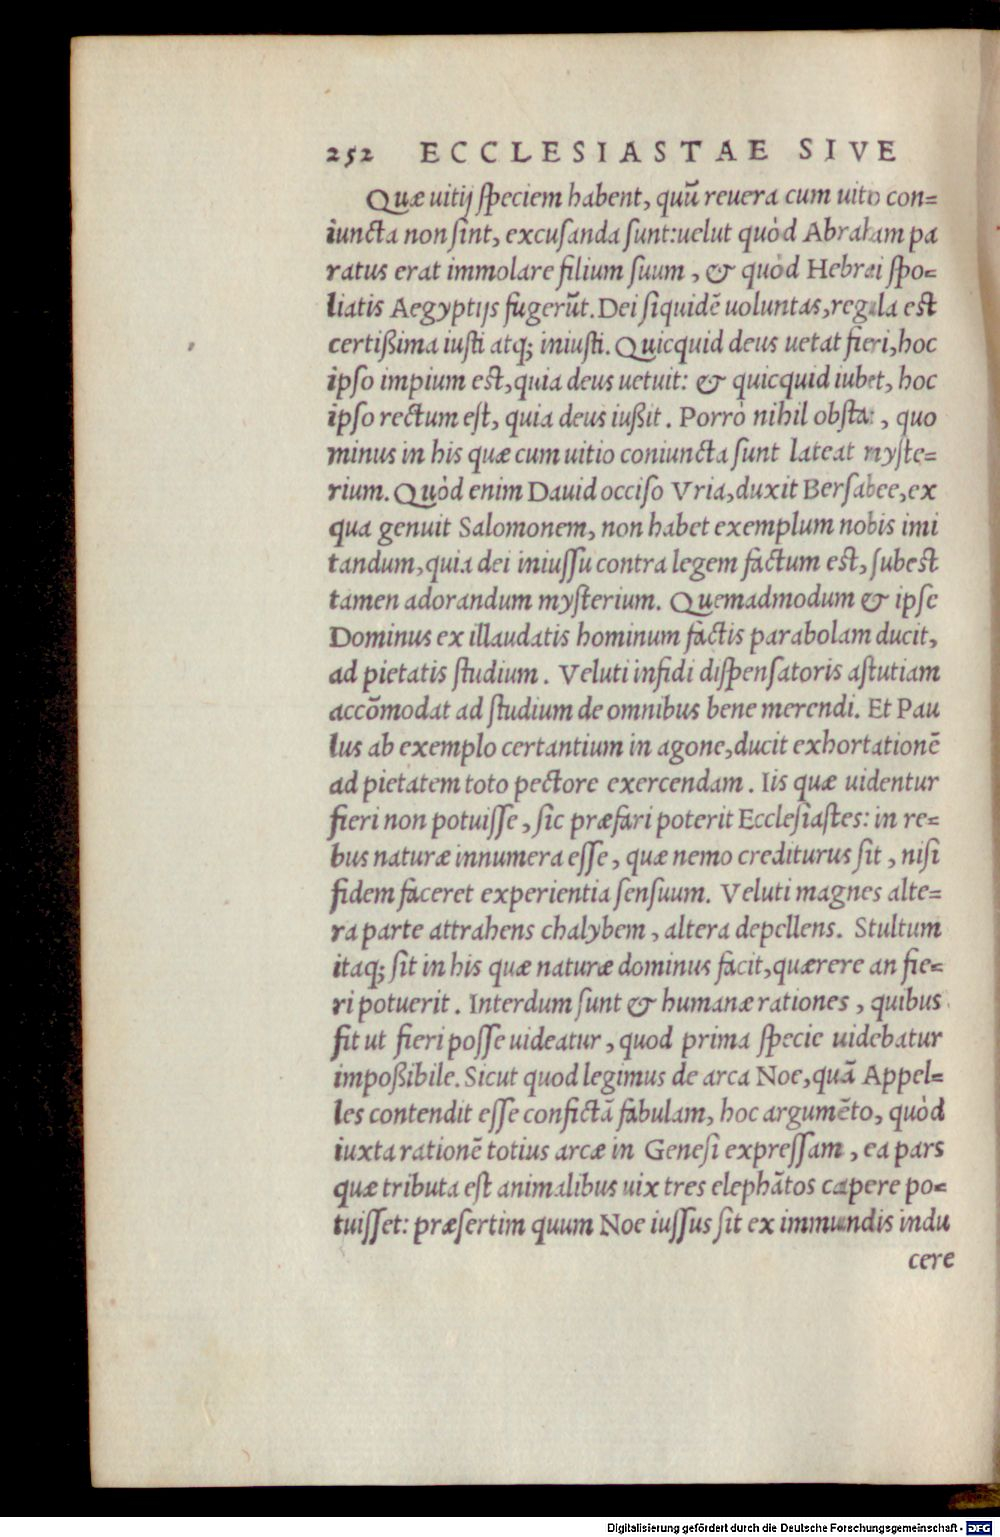 252 ECCLESIASTAE SIVE
Quæ uitij speciem habent, quũ reuera cum uitio con=
iuncta non sint, excusanda sunt:uelut quòd Abraham pa
ratus erat immolare filium suum, & quòd Hebræi spo=
liatis Aegyptijs fugerũt. Dei siquidē uoluntas, regula est
certißima iusti atq; iniusti. Quicquid deus uetat fieri, hoc
ipso impium est, quia deus uetuit: & quicquid iubet, hoc
ipso rectum est, quia deus iußit. Porrò nihil obstat, quo
minus in his quæ cum uitio coniuncta sunt lateat myste=
rium. Quòd enim Dauid occiso Vria, duxit Bersabee, ex
qua genuit Salomonem, non habet exemplum nobis imi
tandum, quia dei iniussu contra legem factum est, subest
tamen adorandum mysterium. Quemadmodum & ipse
Dominus ex illaudatis hominum factis parabolam ducit,
ad pietatis studium. Veluti infidi dispensatoris astutiam
accõmodat ad studium de omnibus bene merendi. Et Pau
lus ab exemplo certantium in agone, ducit exhortationē
ad pietatem toto pectore exercendam. Iis quæ uidentur
fieri non potuisse, sic præfari poterit Ecclesiastes: in re=
bus naturæ innumera esse, quæ nemo crediturus sit, nisi
fidem faceret experientia sensuum. Veluti magnes alte=
ra parte attrahens chalybem, altera depellens. Stultum
itaq; sit in his quæ naturæ dominus facit, quærere an fie=
ri potuerit. Interdum sunt & humanæ rationes, quibus
fit ut fieri posse uideatur, quod prima specie uidebatur
impoßibile. Sicut quod legimus de arca Noe, quã Appel=
les contendit esse confictã fabulam, hoc argumēto, quòd
iuxta rationē totius arcæ in Genesi expressam, ea pars
quæ tributa est animalibus uix tres elephãtos capere po=
tuisset: præsertim quum Noe iussus sit ex immundis indu
cere
Digitalisierung gefördert durch die Deutsche Forschungsgemeinschaft - DFG